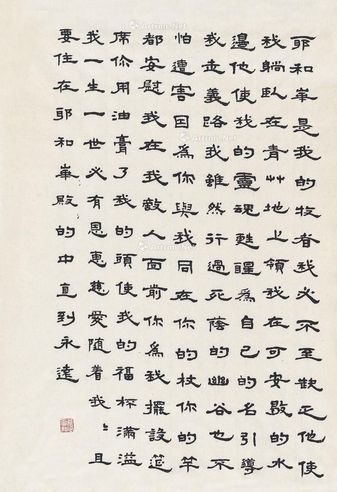 耶和華是我的牧者我必不至缺乏他使
我躺臥在青艸地上領我在可安歇的水
邊他使我的靈魂甦醒為自己的名引導
我走義路我雖然行過死蔭的幽谷也不
怕遭害因為你與我同在你的杖你的竿
都安慰我在我敵人面前你為我擺設筵
席你用油膏了我的頭使我的福杯滿溢
我一生一世必有恩惠慈愛隨着我〻且
要住在耶和華殿的中直到永遠